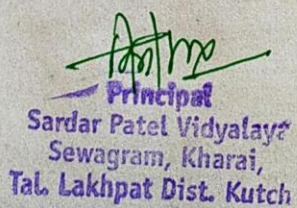 Principal
Sardar Patel Vidyalaya
Sewagram, Kharai,
Tal. Lakhpat Dist. Kutch